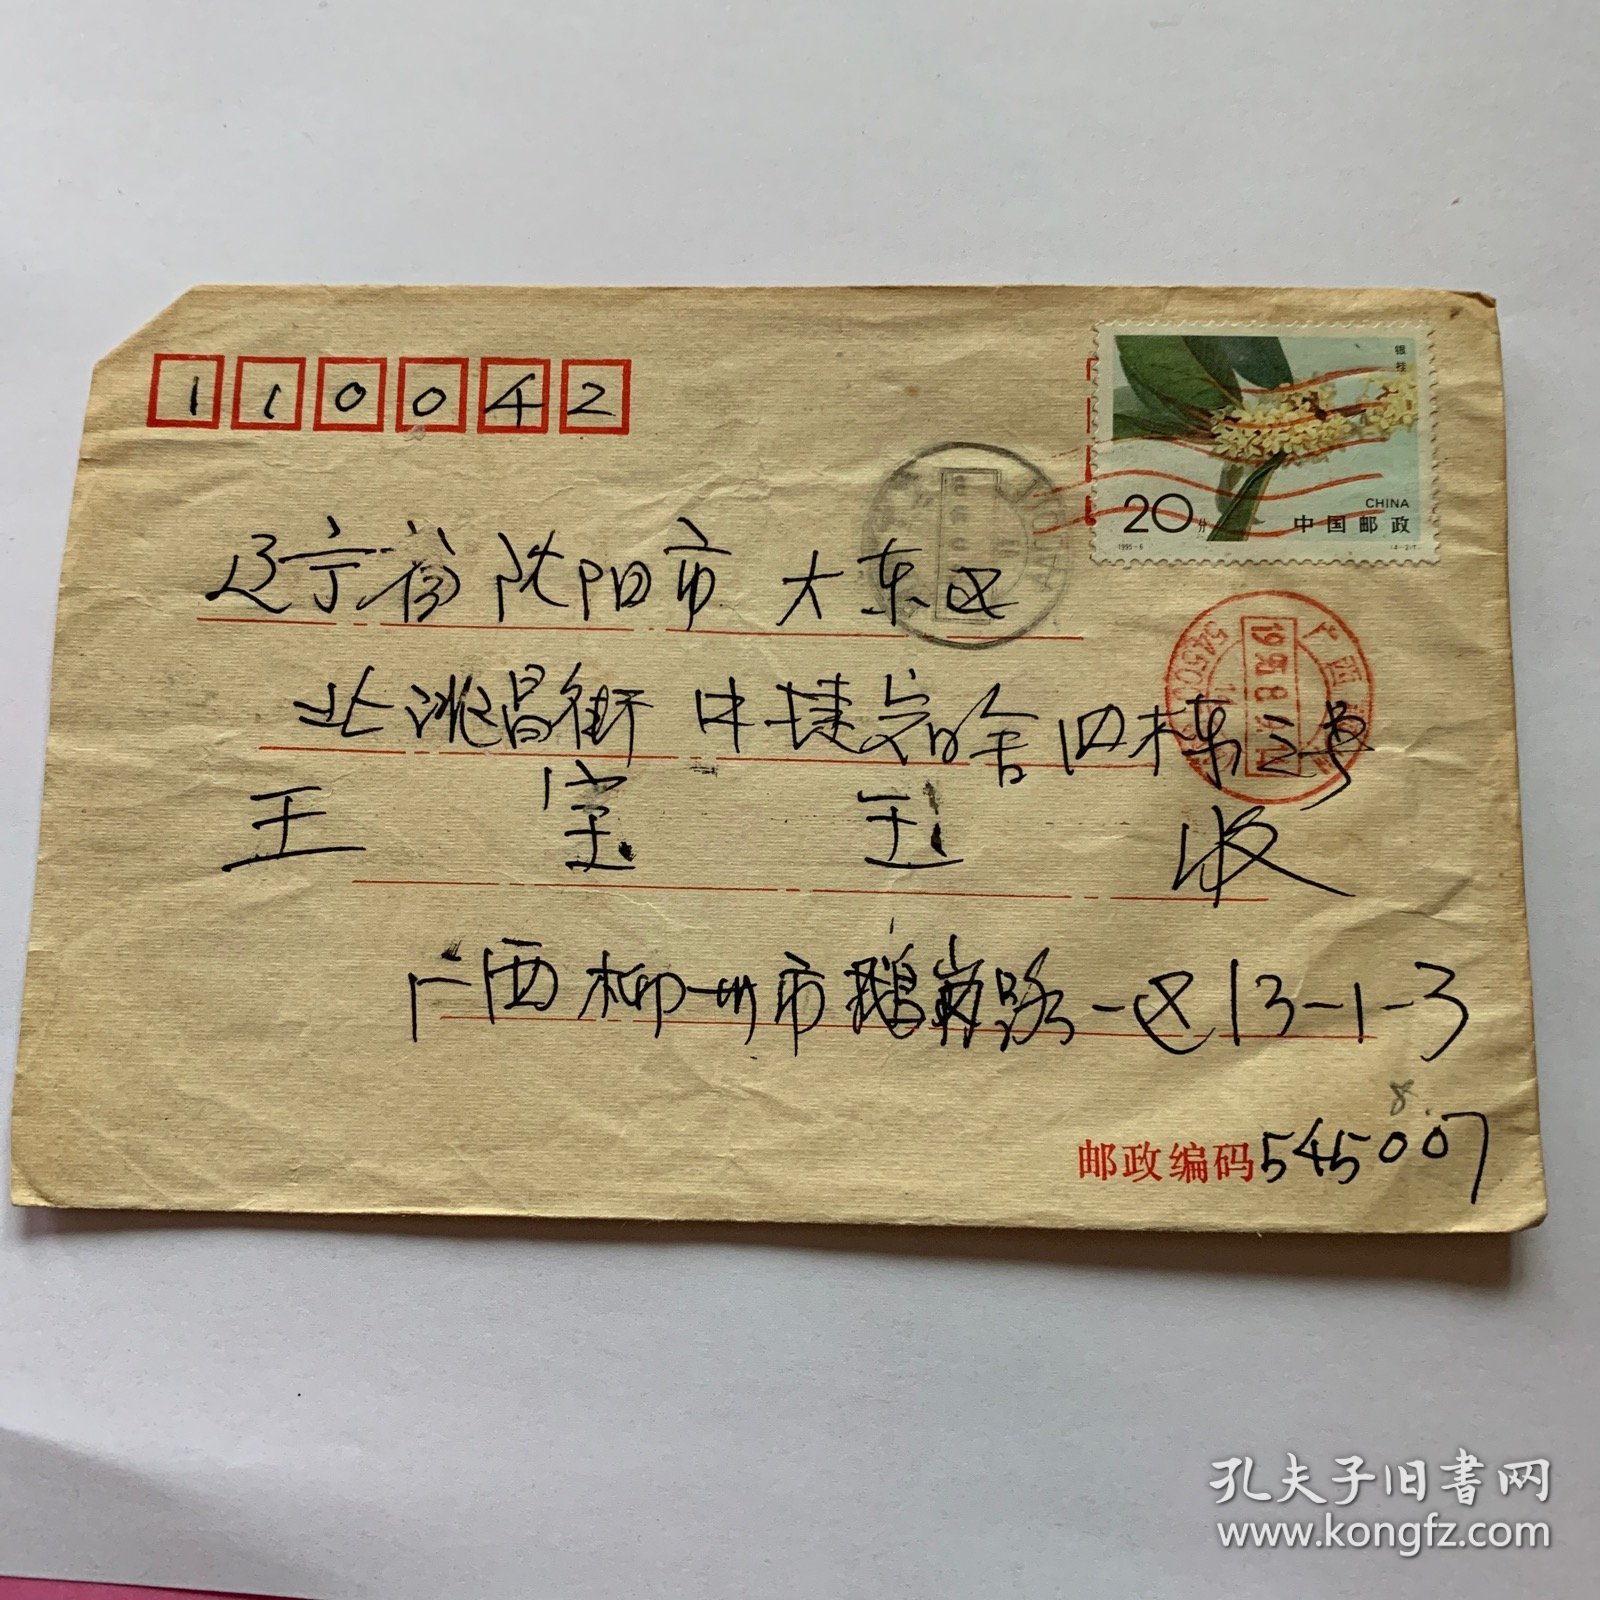 110042
银桂
20分
CHINA
中国邮政
1995-6
(4-2)T
辽宁省沈阳市 大东区
北洮昌街 中捷宿舍四栋三号
王宝玉 收
广西
19 95.8
广西柳州市鹅岗路一区13-1-3
8.
邮政编码545007
孔夫子旧书网
www.kongfz.com